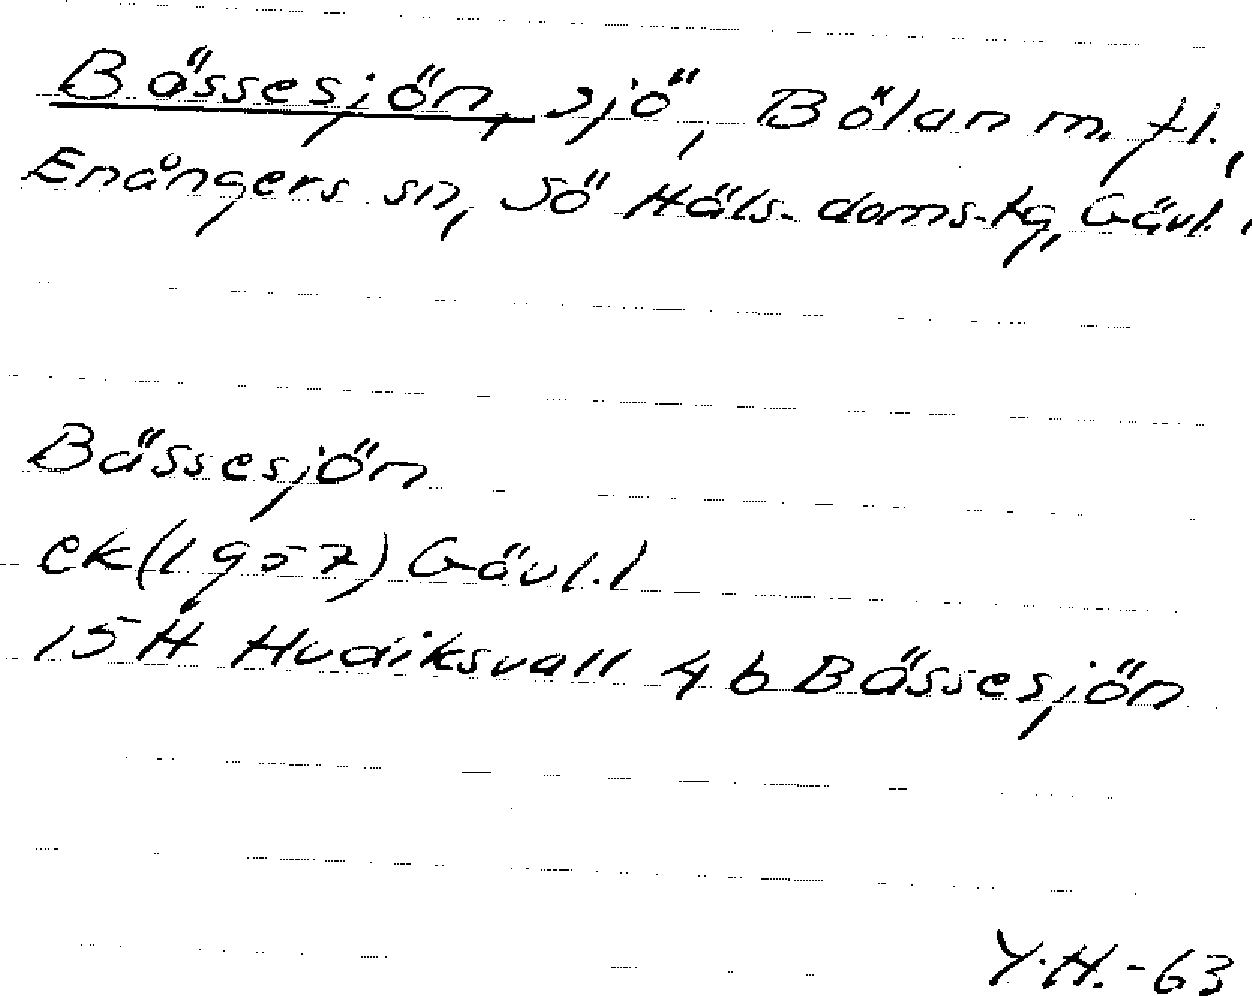 Bässesjön, sjö, Bölan m. fl.,
Enångers sn, Sö Häls. doms-tg, Gävl. l
Bässesjön
ek (1957) Gävl. l
15H Hudiksvall 4 b Bässesjön
Y.H.-63